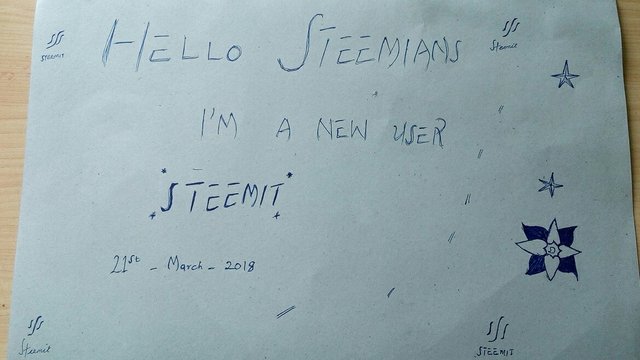 STEEMIT
Steemit
HELLO STEEMIANS
I'M A NEW USER
STEEMIT
21st - March - 2018
Steemit
STEEMIT